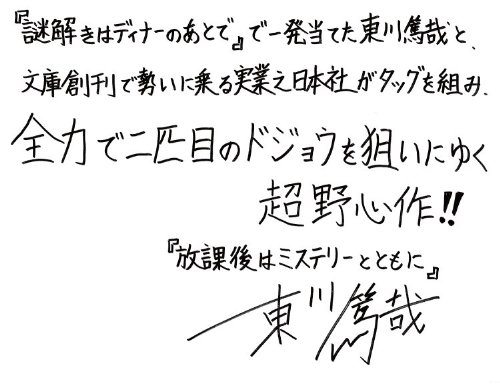 『謎解きはディナーのあとで』で一発当てた東川篤哉と、
文庫創刊で勢いに乗る実業之日本社がタッグを組み、
全力で二匹目のドジョウを狙いにゆく
超野心作!!
『放課後はミステリーとともに』
東川篤哉